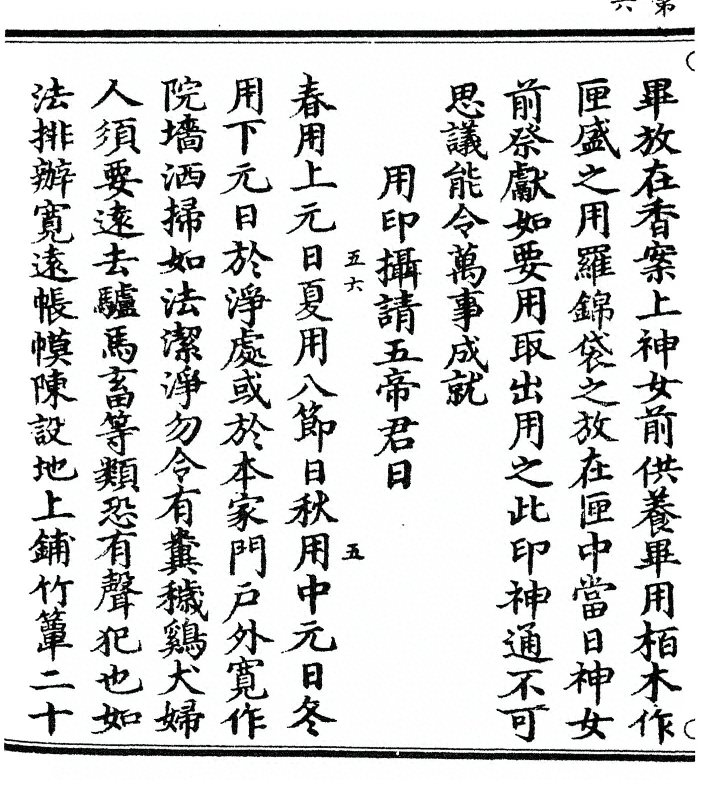 第
六
畢放在香案上神女前供養畢用栢木作
匣盛之用羅錦袋之放在匣中當日神女
前祭獻如要用取出用之此印神通不可
思議能令萬事成就
用印攝請五帝君日
五六
五
春用上元日夏用八節日秋用中元日冬
用下元日於淨處或於本家門戶外寬作
院墻洒掃如法潔淨勿令有糞穢鷄犬婦
人須要遠去驢馬畜等類恐有聲犯也如
法排辦寬遠帳幙陳設地上鋪竹簟二十